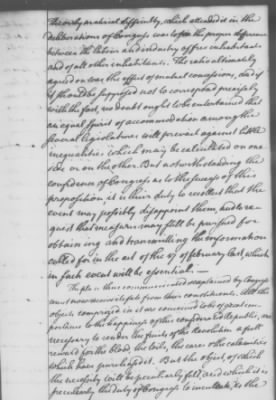 The only material difficulty, which attended it in the
deliberations of Congress was to fix the proper difference
between the labor and industry of free inhabitants
and of all other inhabitants. The ratio ultimately
agreed on was the effect of mutual concessions, and if
it should be supposed not to correspond precisely
with the fact, no doubt ought to be entertained that
an equal spirit of accommodation among the
several legislatures will prevail against little
inequalities which may be calculated on one
side or on the other. But notwithstanding the
confidence of Congress as to the success of this
proposition, it is their duty to recollect that the
event may possibly disappoint them, and to re-
quest that measures may still be pursued for
obtaining and transmitting the information
called for in the act of the 17 of february last, which
in such event will be essential. —
The plan thus communicated and explained by Congress
must now receive its fate from their constituents. All the
objects comprised in it are conceived to be of great im-
portance to the happiness of this confederated republic, are
necessary to render the fruits of the Revolution a full
reward for the blood, the toils, the cares and the calamities
which have purchased it. But the object of which
the necessity will be peculiarly felt, and which it is
peculiarly the duty of Congress to inculcate, is the